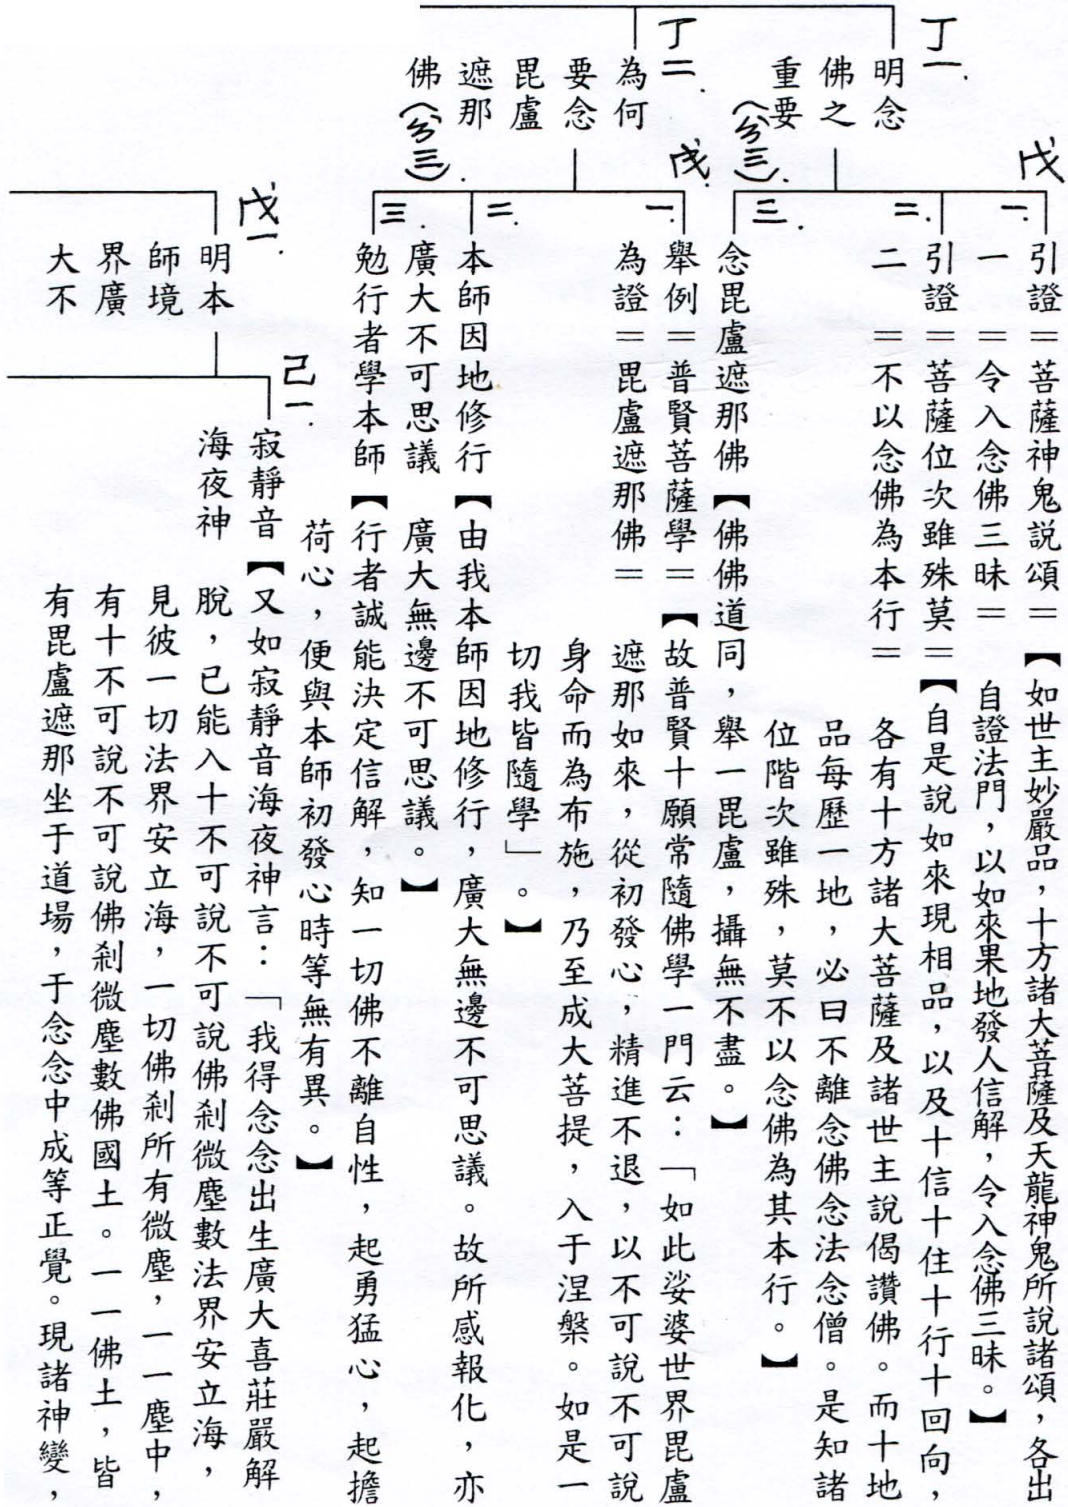 丁一.
明念
佛之
重要
(分三).
戊
一.
引證＝菩薩神鬼説頌＝【如世主妙嚴品，十方諸大菩薩及天龍神鬼所說諸頌，各出
一＝令入念佛三昧＝自證法門，以如來果地發人信解，令入念佛三昧。】
二.
引證＝菩薩位次雖殊莫＝【自是說如來現相品，以及十信十住十行十回向，
二＝不以念佛為本行＝各有十方諸大菩薩及諸世主說偈讚佛。而十地
品每歷一地，必曰不離念佛念法念僧。是知諸
位階次雖殊，莫不以念佛為其本行。】
三.
念毘盧遮那佛【佛佛道同，舉一毘盧，攝無不盡。】
丁二
為何
要念
毘盧
遮那
佛(分三).
戊.
一.
舉例＝普賢菩薩學＝【故普賢十願常隨佛學一門云：「如此娑婆世界毘盧
為證＝毘盧遮那佛＝遮那如來，從初發心，精進不退，以不可說不可說
身命而為布施，乃至成大菩提，入于涅槃。如是一
切我皆隨學」。】
二.
本師因地修行【由我本師因地修行，廣大無邊不可思議。故所感報化，亦
廣大不可思議　廣大無邊不可思議。】
三.
勉行者學本師【行者誠能決定信解，知一切佛不離自性，起勇猛心，起擔
荷心，便與本師初發心時等無有異。】
戊一.
明本
師境
界廣
大不
己一.
寂靜音【又如寂靜音海夜神言：「我得念念出生廣大喜莊嚴解
海夜神　脫，已能入十不可說不可說佛剎微塵數法界安立海，
見彼一切法界安立海，一切佛剎所有微塵，一一塵中，
有十不可說不可說佛剎微塵數佛國土。一一佛土，皆
有毘盧遮那坐于道場，于念念中成等正覺。現諸神變，